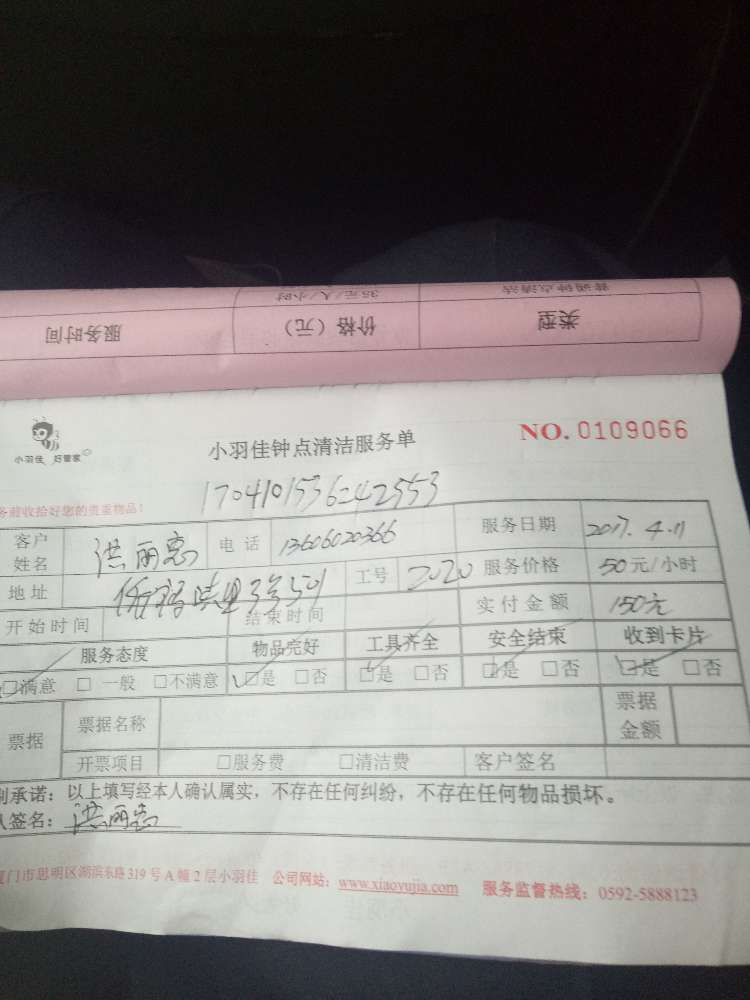 普通钟点清洁 35元/人/小时
类型 价格（元） 服务时间
小羽佳 好管家
小羽佳钟点清洁服务单 NO. 0109066
务前收拾好您的贵重物品！ 1704101536242553
客户姓名 洪丽惠 电 话 13606020366 服务日期 2017. 4. 11
地 址 工号 2020 服务价格 50元/小时
开 始 时 间 结 束 时 间 实 付 金 额 150元
服务态度 物品完好 工具齐全 安全结束 收到卡片
☑满意 □一般 □不满意 ☑是 □否 ☑是 □否 ☑是 □否 ☑是 □否
票据 票据名称 票据金额
开票项目 □服务费 □清洁费 客户签名
别承诺：以上填写经本人确认属实，不存在任何纠纷，不存在任何物品损坏。
人签名：洪丽惠
厦门市思明区湖滨东路319号A幢2层小羽佳 公司网站：www.xiaoyujia.com 服务监督热线：0592-5888123